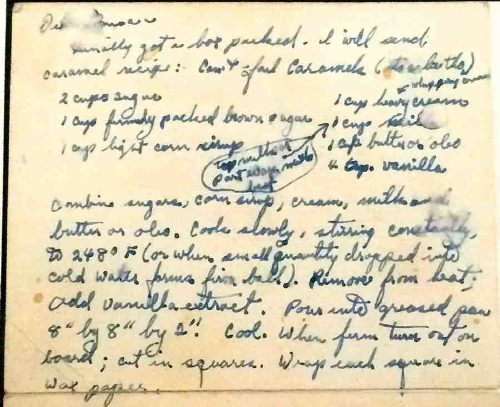 Finally got a box packed. I will send
caramel recipe: Can't fail Caramels
whipping cream
2 cups sugar
1 cup heavy cream
1 cup firmly packed brown sugar
1 cup milk
1 cup light corn sirup
1 cup butter or oleo
4 tsp. vanilla
Top milk or
part evap. milk
best
Combine sugars, corn sirup, cream, milk and
butter or oleo. Cook slowly, stirring constantly,
to 248° F (or when small quantity dropped into
cold water forms firm ball). Remove from heat;
add vanilla extract. Pour into greased pan
8" by 8" by 2". Cool. When firm turn out on
board; cut in squares. Wrap each square in
wax paper.